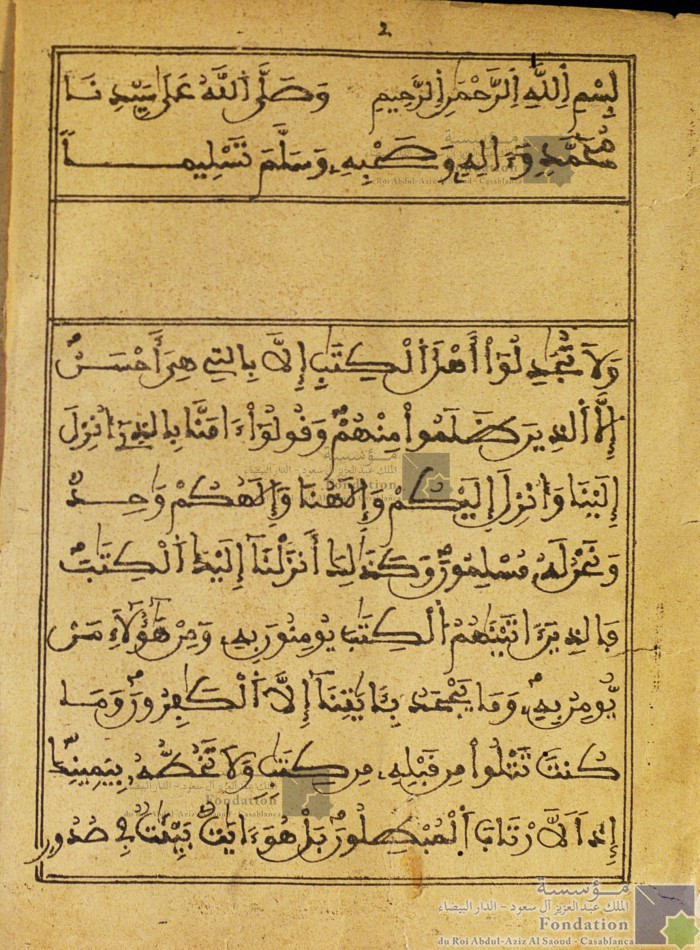 2
بِسْمِ اِ۬للَّهِ اِ۬لرَّحْمَٰنِ اِ۬لرَّحِيمِ وَصَلَّى اَ۬للَّهُ عَلَىٰ سَيِّدِنَا
مُحَمَّدٍ وَءَالِهِ وَصَحْبِهِ وَسَلَّمَ تَسْلِيماً
وَلَا تُجَٰدِلُوٓاْ أَهْلَ اَ۬لْكِتَٰبِ إِلَّا بِالتِے هِيَ أَحْسَنُ
إِلَّا اَ۬لذِينَ ظَلَمُواْ مِنْهُمْ وَقُولُوٓاْ ءَامَنَّا بِالذِےٓ أُنزِلَ
إِلَيْنَا وَأُنزِلَ إِلَيْكُمْ وَإِلَٰهُنَا وَإِلَٰهُكُمْ وَٰحِدٌ
وَنَحْنُ لَهُۥ مُسْلِمُونَ وَكَذَٰلِكَ أَنزَلْنَآ إِلَيْكَ اَ۬لْكِتَٰبَ
فَالذِينَ ءَاتَيْنَٰهُمُ اُ۬لْكِتَٰبَ يُومِنُونَ بِهِۦ وَمِنْ هَٰٓؤُلَآءِ مَنْ
يُّومِنُ بِهِۦ وَمَا يَجْحَدُ بِـَٔايَٰتِنَآ إِلَّا اَ۬لْكَٰفِرُونَ وَمَا
كُنتَ تَتْلُواْ مِن قَبْلِهِۦ مِن كِتَٰبٍ وَلَا تَخُطُّهُۥ بِيَمِينِكَ
إِذاً لَّارْتَابَ اَ۬لْمُبْطِلُونَ بَلْ هُوَ ءَايَٰتٌ بَيِّنَٰتٌ فِے صُدُورِ
مؤسسة
الملك عبد العزيز آل سعود - الدار البيضاء
Fondation
du Roi Abdul-Aziz Al Saoud - Casablanca